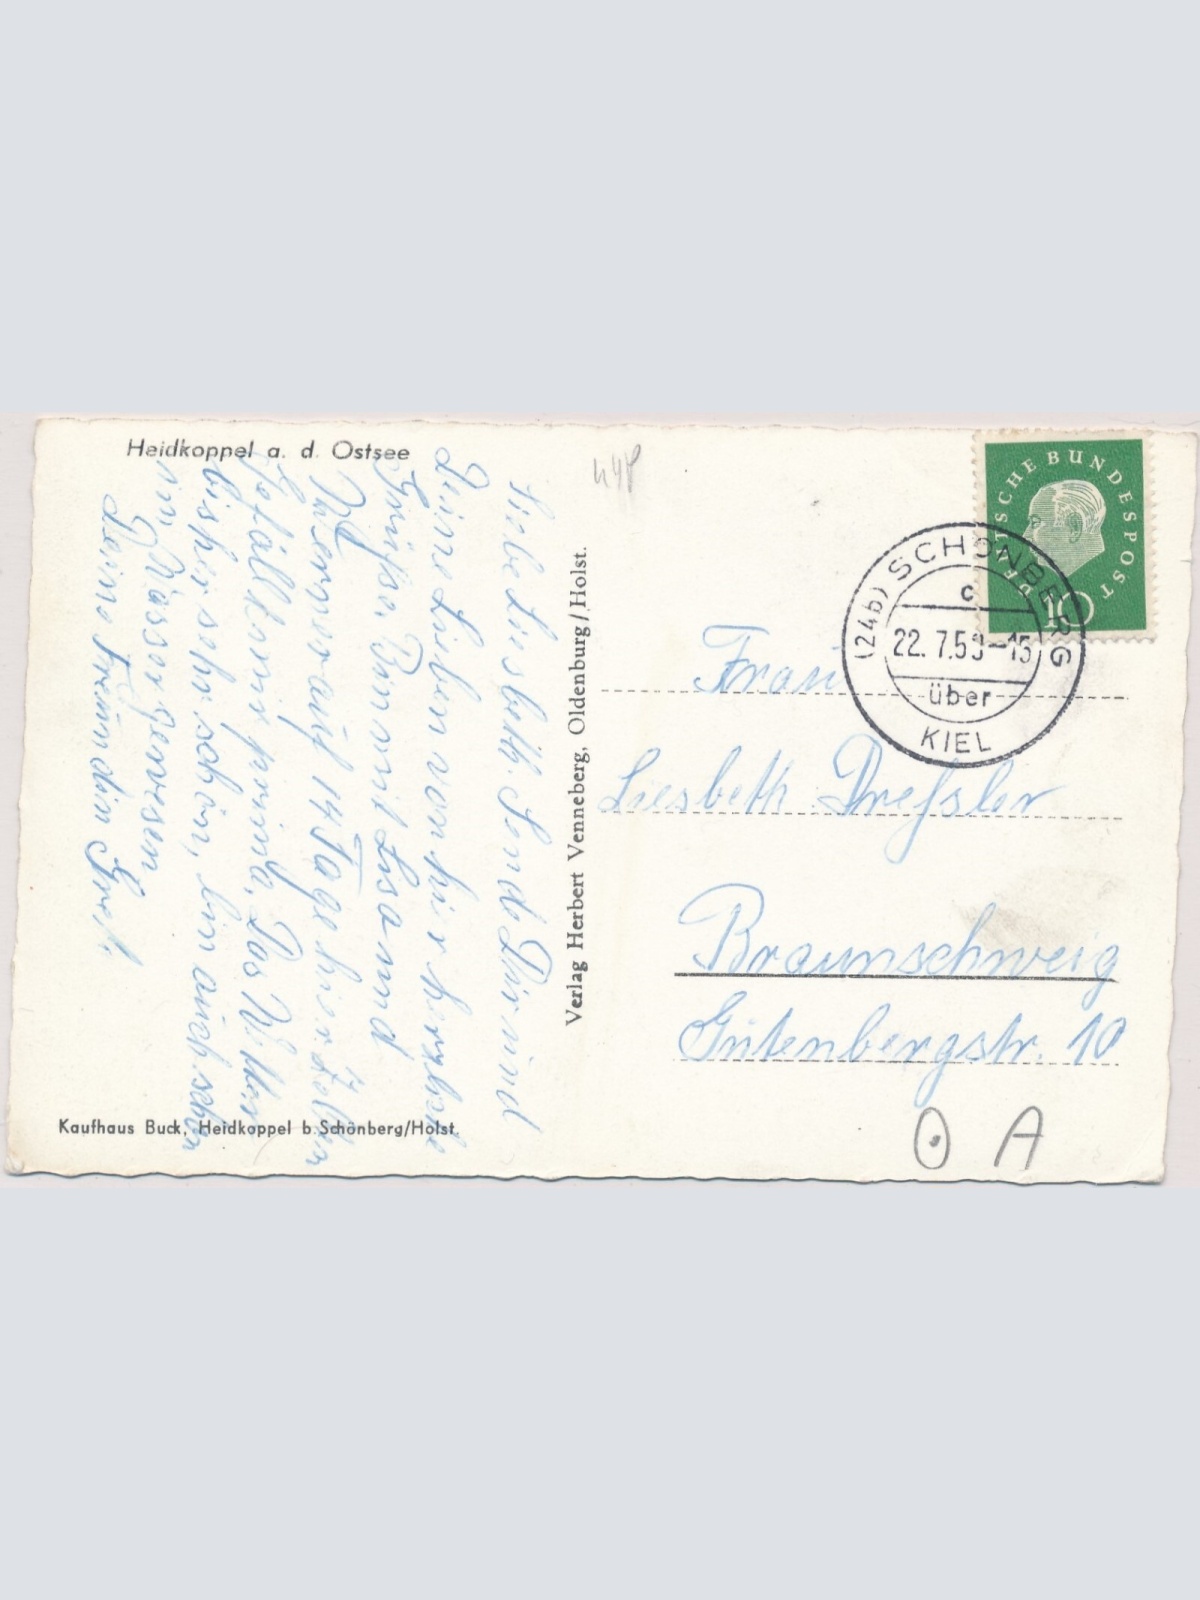 Heidkoppel a. d. Ostsee
Liebe Liesbeth. Send Dir und
Deine Lieben von hier herzliche
Grüsse Bin mit Lisa und
Werner auf 14 Tage hier. Zelten
Gefällt mir prima. Das Wetter
bisher sehr schön, bin auch schon
im Wasser gewesen
Deine Freundin
Kaufhaus Buck, Heidkoppel b. Schönberg/Holst.
Verlag Herbert Venneberg, Oldenburg/Holst.
448
DEUTSCHE BUNDESPOST
10
(24b) SCHÖNBERG
c
22. 7.59-15
über
KIEL
Frau
Liesbeth Dreßler
Braunschweig
Gutenbergstr. 10
A